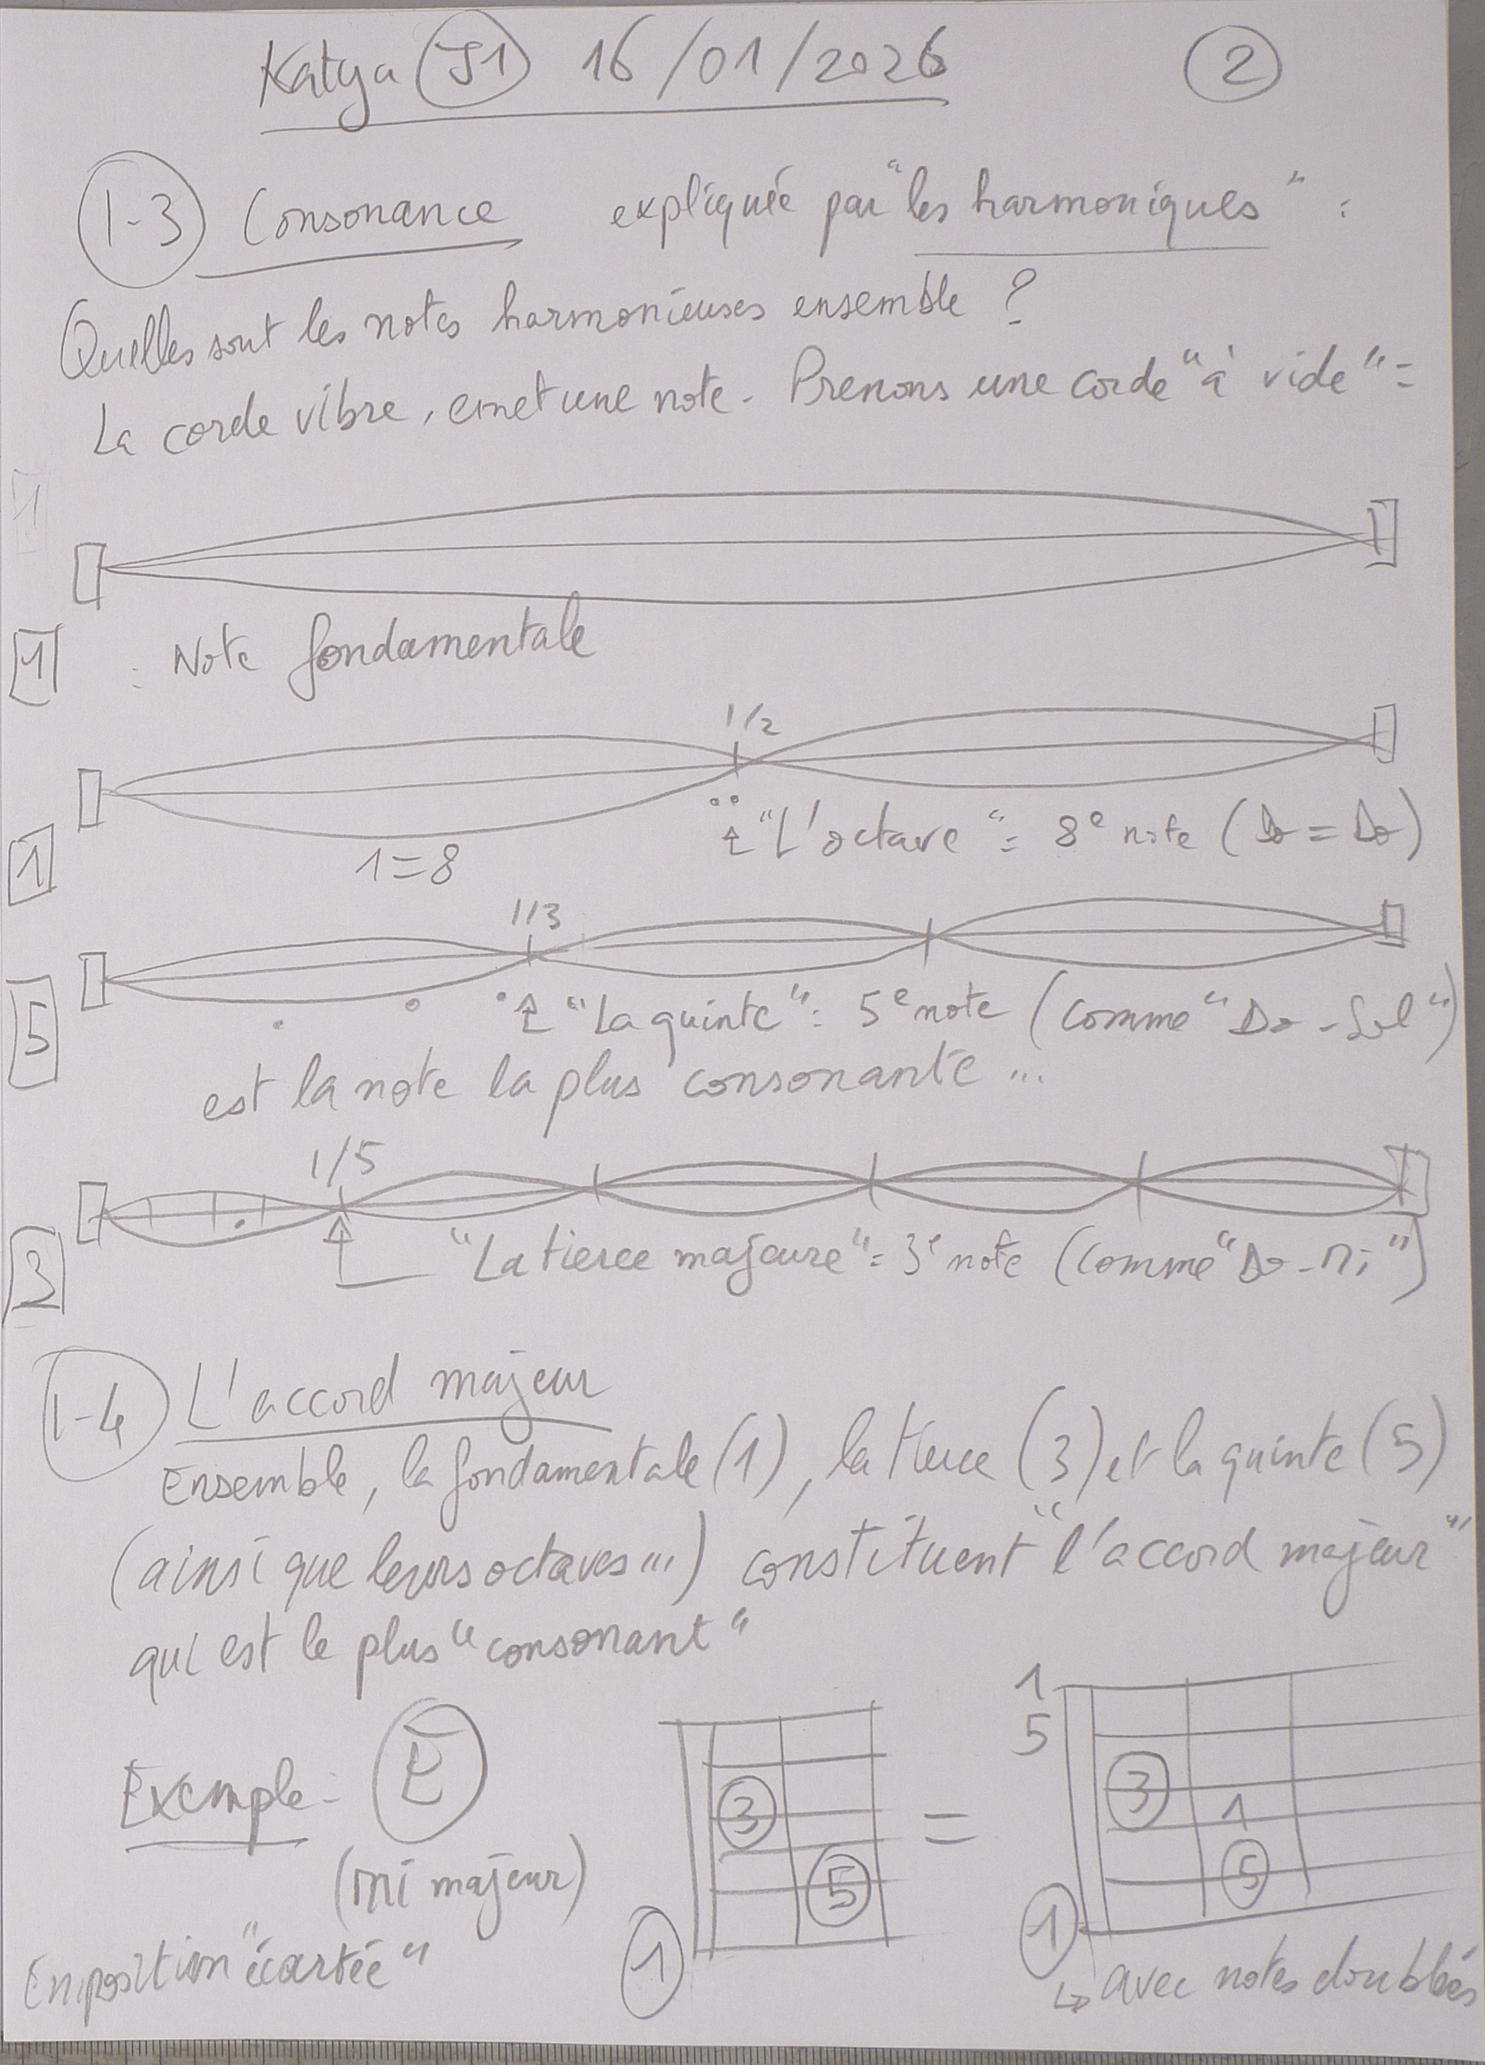 Katya J1 16/01/2026 2
1-3 Consonance expliquée par "les harmoniques" :
Quelles sont les notes harmonieuses ensemble ?
La corde vibre, emet une note. Prenons une corde "à vide" =
1
1 : Note fondamentale
1/2
"L'octave" = 8e note (Do = Do)
1 1=8
1/3
5 "La quinte" = 5e note (comme "Do - Sol")
est la note la plus consonante ...
1/5
3 "La tierce majeure" = 3e note (comme "Do - Mi")
1-4 L'accord majeur
Ensemble, la fondamentale (1), la tierce (3) et la quinte (5)
(ainsi que leurs octaves ...) constituent "l'accord majeur"
qui est le plus "consonant"
Exemple : E
(mi majeur)
En position "écartée"
3
5
1
=
1
5
3
1
5
1
↳ avec notes doublées